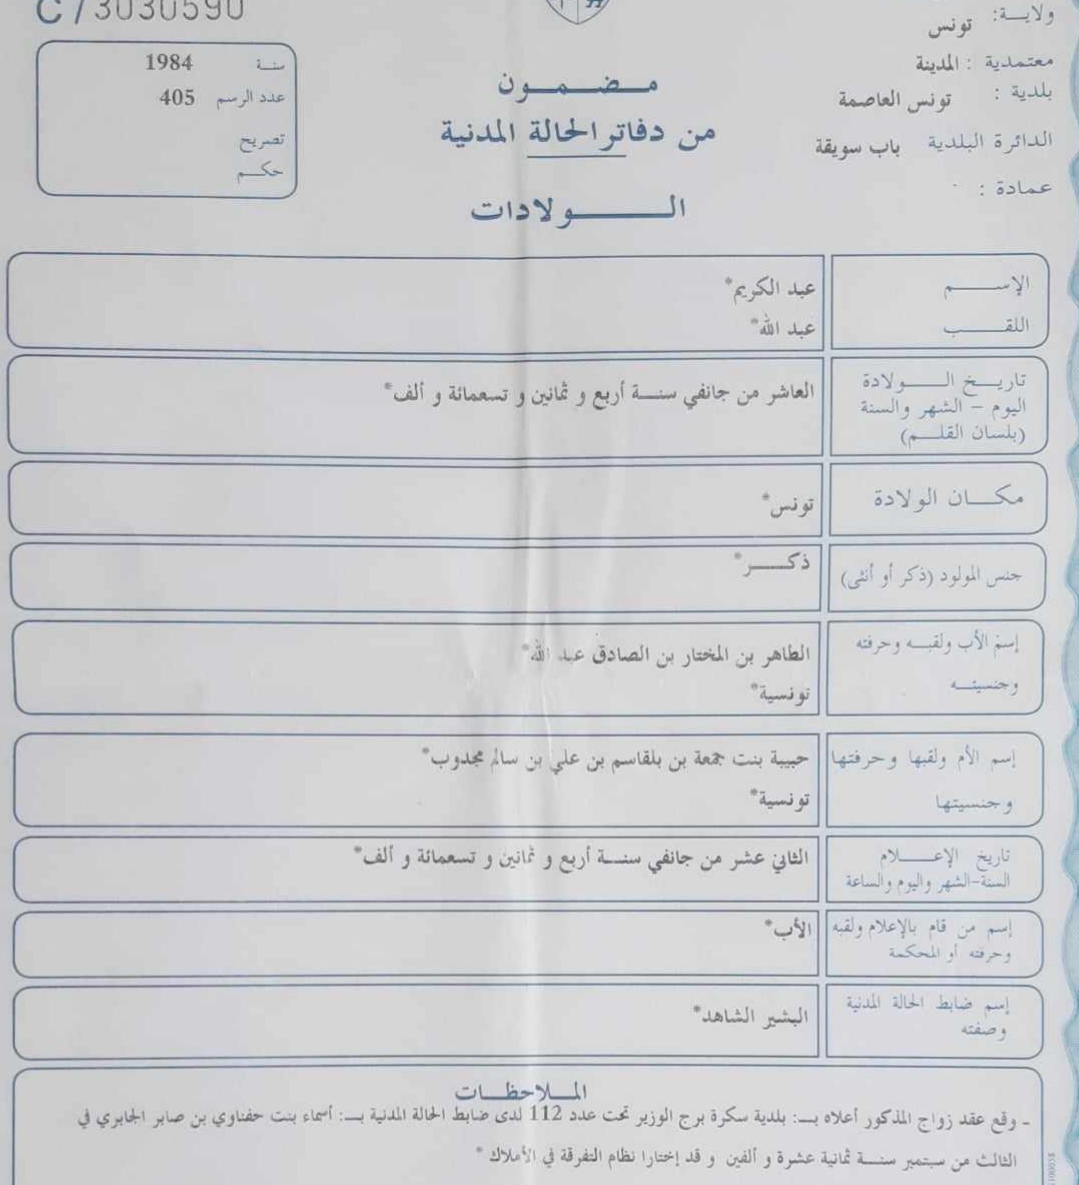 C73030590
ولايـة: تونس
معتمدية : المدينة
بلدية : تونس العاصمة
الدائرة البلدية باب سويقة
عمادة :
مـضـمـون
من دفاتر الحالة المدنية
الـولادات
سنـة 1984
عدد الرسم 405
تصريح
حكـم
الإسـم عبد الكريم*
اللقـب عبد الله*
تاريـخ الـولادة
اليوم – الشهر والسنة
(بلسان القلـم)
العاشر من جانفي سنـة أربع و ثمانين و تسعمائة و ألف*
مكـان الولادة تونس*
جنس المولود (ذكر أو أنثى) ذكـر*
إسم الأب ولقبـه وحرفته
وجنسيتـه
الطاهر بن المختار بن الصادق عبد الله*
تونسية*
إسم الأم ولقبها وحرفتها
وجنسيتها
حبيبة بنت جمعة بن بلقاسم بن علي بن سالم مجدوب*
تونسية*
تاريخ الإعـلام
السنة-الشهر واليوم والساعة
الثاني عشر من جانفي سنـة أربع و ثمانين و تسعمائة و ألف*
إسم من قام بالإعلام ولقبه
وحرفته أو المحكمة
الأب*
إسم ضابط الحالة المدنية
وصفته
البشير الشاهد*
المـلاحظـات
- وقع عقد زواج المذكور أعلاه بـ: بلدية سكرة برج الوزير تحت عدد 112 لدى ضابط الحالة المدنية بـ: أسماء بنت حفناوي بن صابر الجابري في
الثالث من سبتمبر سنـة ثمانية عشرة و ألفين و قد إختارا نظام التفرقة في الأملاك *